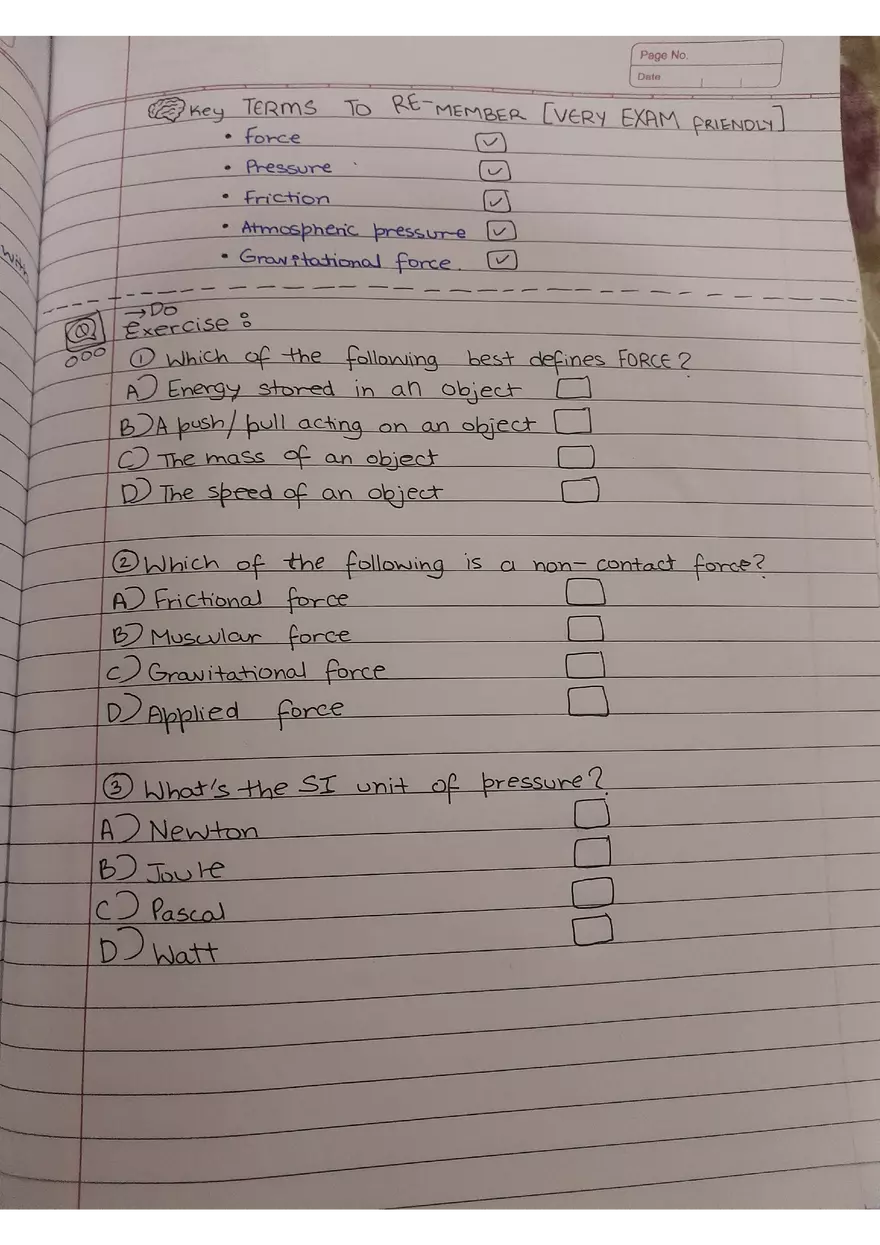 Page No.
Date
Key TERMS TO RE-MEMBER [VERY EXAM FRIENDLY]
• Force
• Pressure
• Friction
• Atmospheric pressure
• Gravitational force.
With
→Do
Q Exercise :
① Which of the following best defines FORCE?
A) Energy stored in an object
B) A push/pull acting on an object
C) The mass of an object
D) The speed of an object
② Which of the following is a non-contact force?
A) Frictional force
B) Muscular force
C) Gravitational force
D) Applied force
③ What's the SI unit of pressure?
A) Newton
B) Joule
C) Pascal
D) Watt